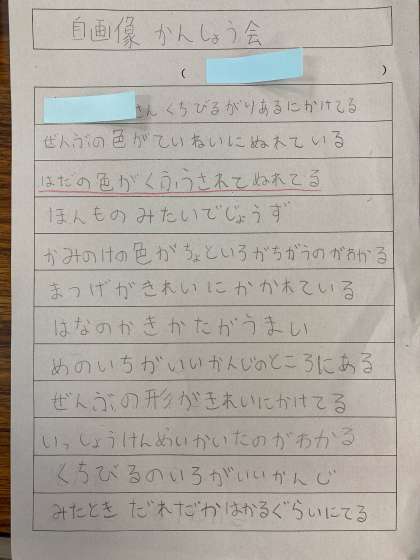 自画像 かんしょう会
( )
さん くちびるがりあるにかけてる
ぜんぶの色がていねいにぬれている
はだの色がくふうされてぬれてる
ほんものみたいでじょうず
かみのけの色がちょといろがちがうのがわかる
まつげがきれいにかかれている
はなのかきかたがうまい
めのいちがいいかんじのところにある
ぜんぶの形がきれいにかけてる
いっしょうけんめいかいたのがわかる
くちびるのいろがいいかんじ
みたとき だれだかはかるぐらいにてる